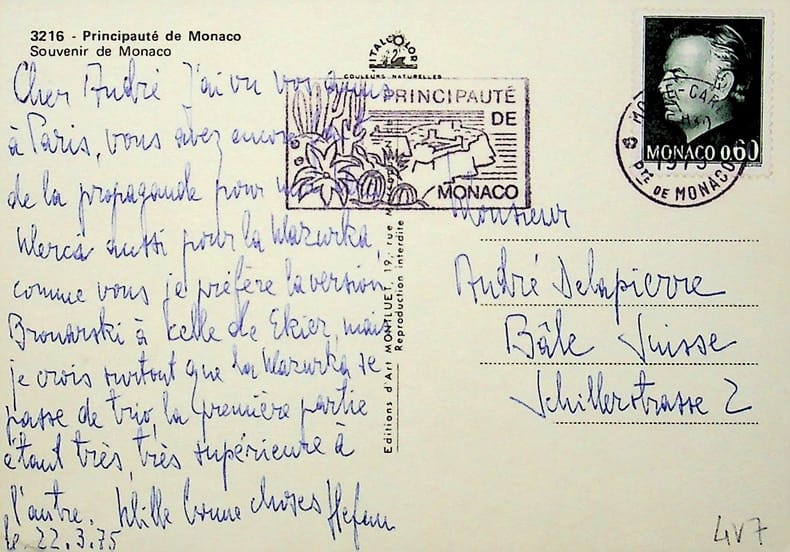 3216 - Principauté de Monaco
Souvenir de Monaco
ITALCOLOR
COULEURS NATURELLES
PRINCIPAUTÉ
DE
MONACO
MONACO 0,60
MONTE-CARLO
1975
PTÉ DE MONACO
Cher André J'ai vu vos amis
à Paris, vous avez encore fait
de la propagande pour
Merci aussi pour la Mazurka,
comme vous je préfère la version
Bronarski à celle de Ekier, mais
je crois surtout que la Mazurka se
passe de trio, la première partie
étant très, très supérieure à
l'autre. Mille bonne choses Stefan
le 22.3.75
Editions d'Art MONTLUET, 19, rue
Reproduction interdite
Monsieur
André Delapierre
Bâle Suisse
Schillerstrasse 2
4V7